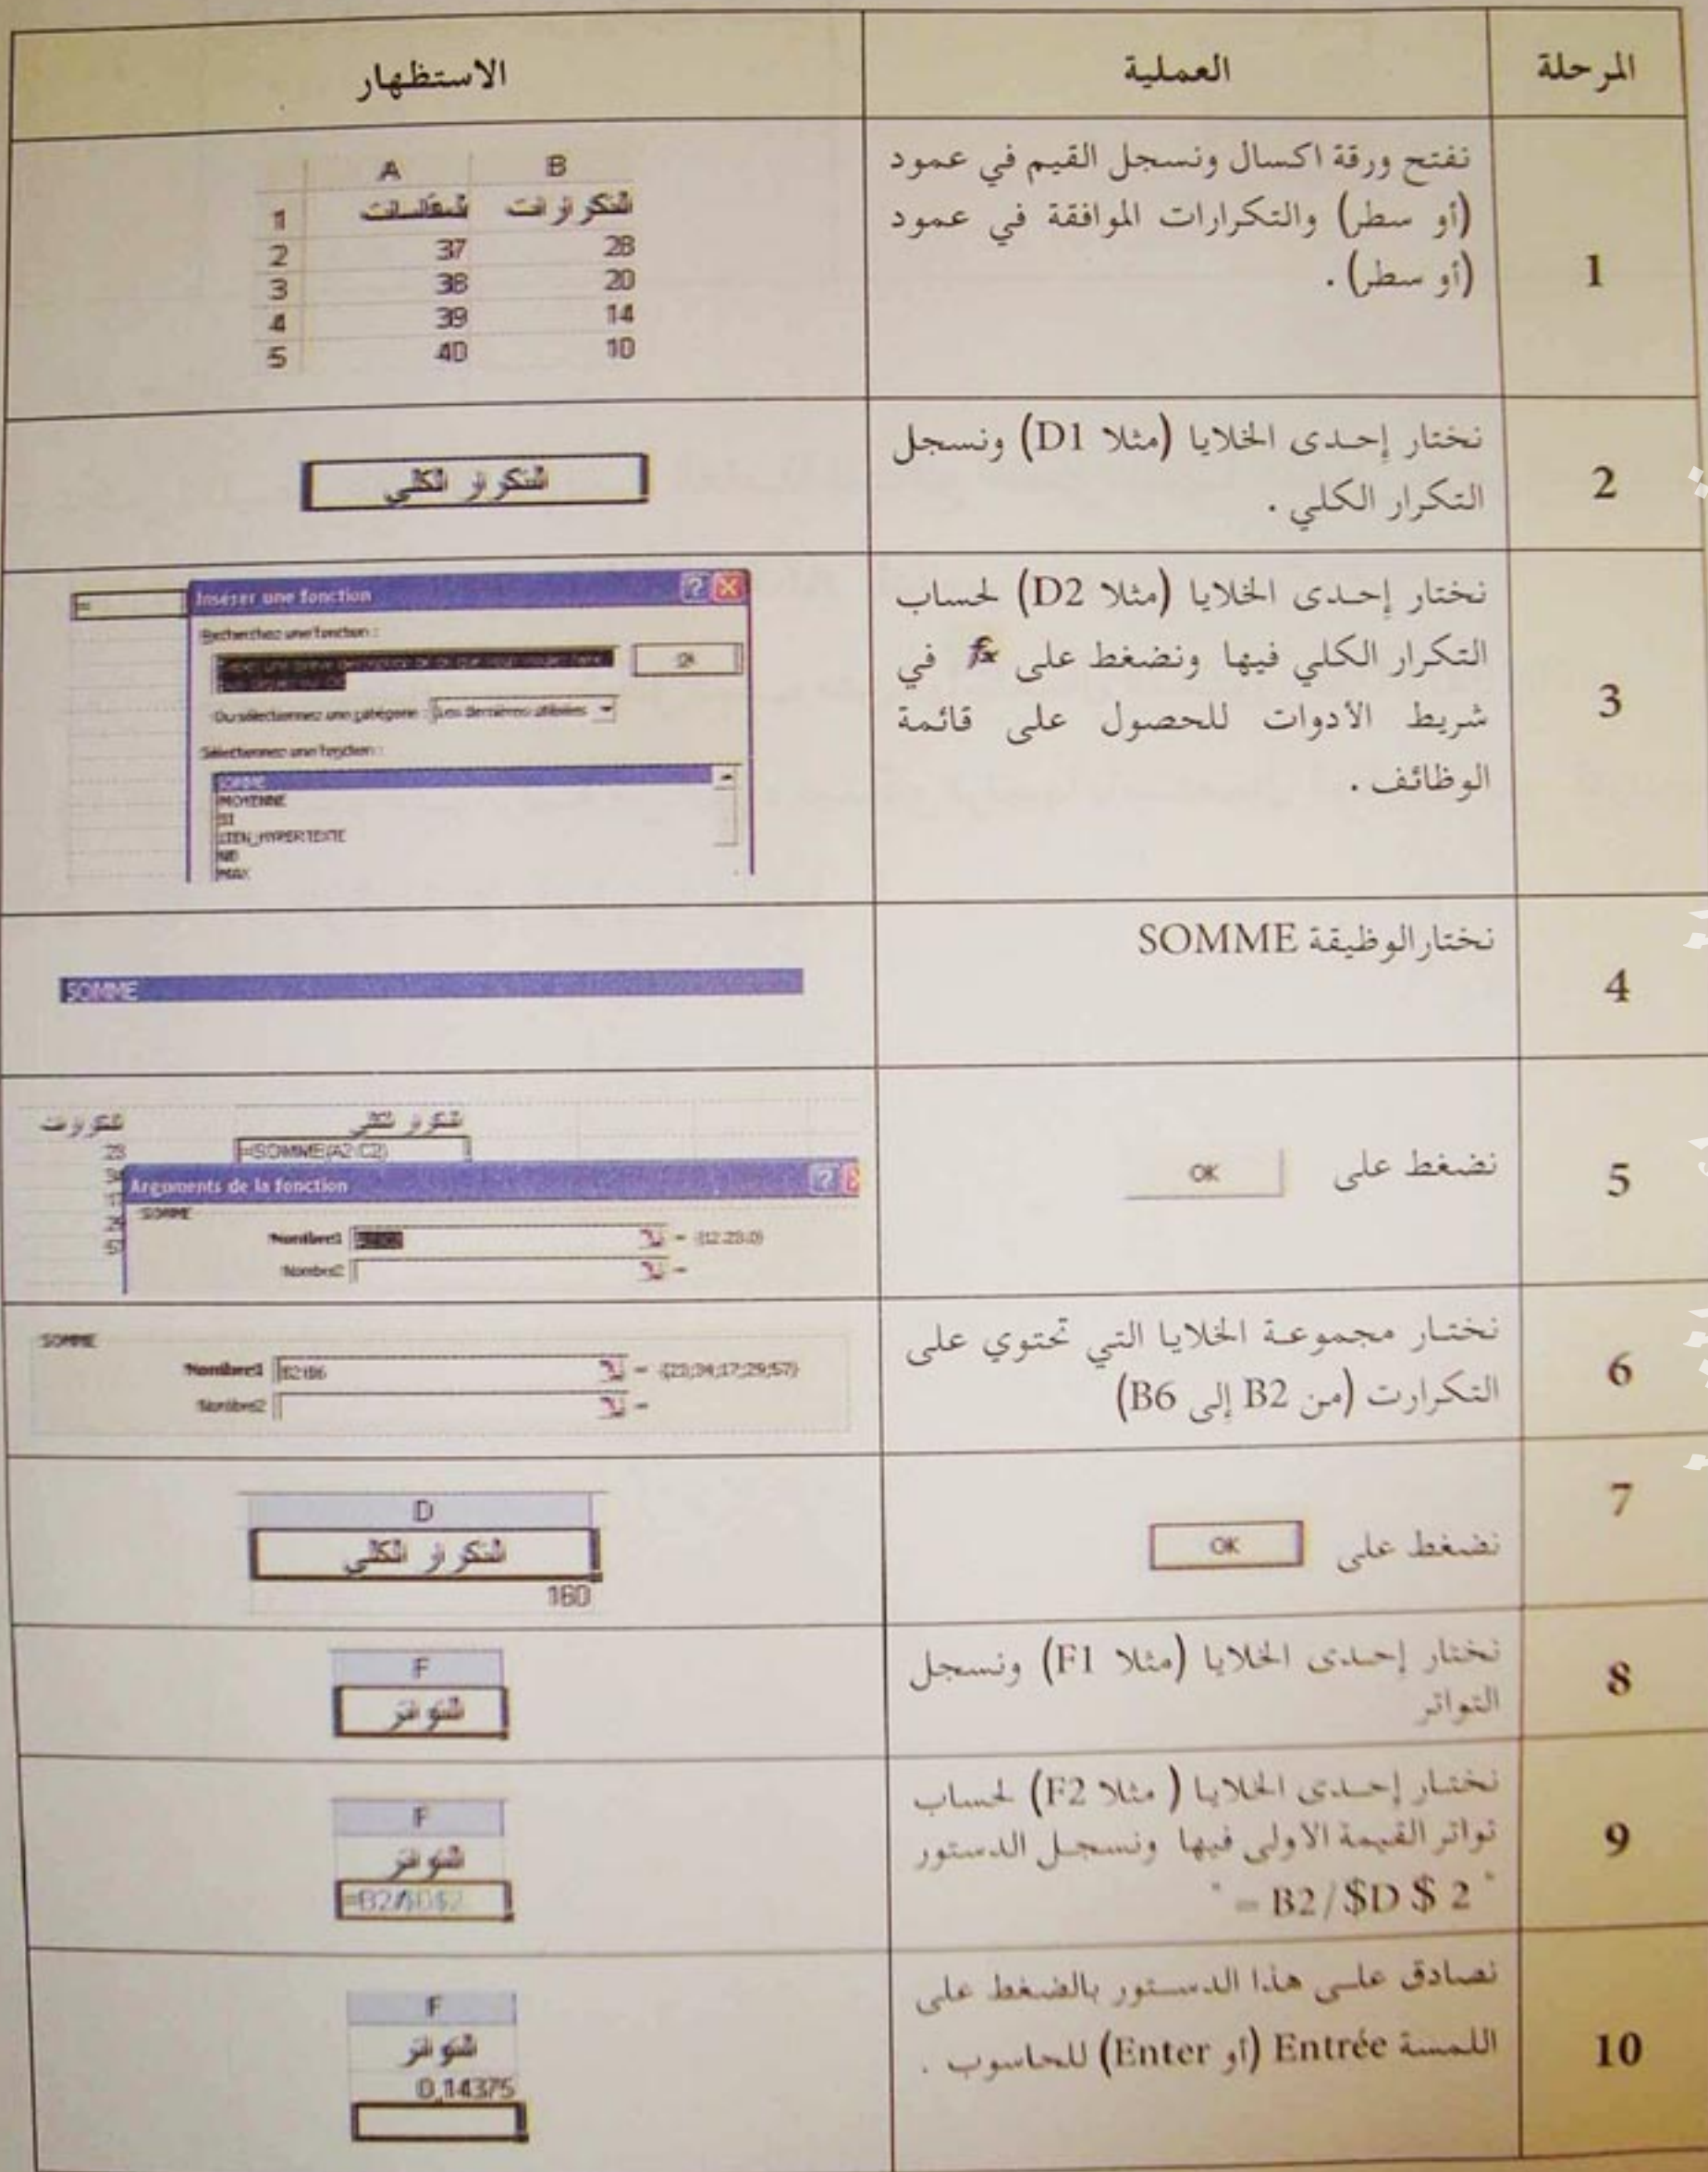 المرحلة العملية الاستظهار
1
نفتح ورقة اكسال ونسجل القيم في عمود
(أو سطر) والتكرارات الموافقة في عمود
(أو سطر) .
A B
1 المقاسات التكرارات
2 37 28
3 38 20
4 39 14
5 40 10
2
نختار إحدى الخلايا (مثلا D1) ونسجل
التكرار الكلي .
التكرار الكلي
3
نختار إحدى الخلايا (مثلا D2) لحساب
التكرار الكلي فيها ونضغط على fx في
شريط الأدوات للحصول على قائمة
الوظائف .
=
Insérer une fonction
Recherchez une fonction :
OK
Ou sélectionnez une catégorie : Les dernières utilisées
Sélectionnez une fonction :
SOMME
MOYENNE
SI
LIEN_HYPERTEXTE
NB
MAX
4
نختار الوظيقة SOMME
SOMME
5
نضغط على OK
التكرارات التكرار الكلي
=SOMME(A2:C2)
Arguments de la fonction
SOMME
Nombre1
Nombre2 =
6
نختار مجموعة الخلايا التي تحتوي على
التكرارت (من B2 إلى B6)
SOMME
Nombre1 B2:B6 = {23;34;17;29;57}
Nombre2 =
7
نضغط على OK
D
التكرار الكلي
160
8
نختار إحدى الخلايا (مثلا F1) ونسجل
التواتر
F
التواتر
9
نختار إحدى الخلايا ( مثلا F2) لحساب
تواتر القيمة الأولى فيها ونسجل الدستور
" = B2/$D $ 2 "
F
التواتر
=B2/$D$2
10
نصادق على هذا الدستور بالضغط على
اللمسة Entrée (أو Enter) للحاسوب .
F
التواتر
0,14375